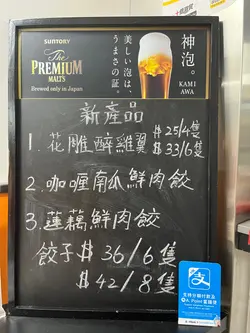 SUNTORY
The
PREMIUM
MALT'S
Brewed only in Japan
美しい泡は、
うまさの証。
神泡。
KAMI
AWA
新產品
1. 花雕醉雞翼 $25/4隻
$33/6隻
2. 咖喱南瓜鮮肉餃
3. 蓮藕鮮肉餃
餃子 $36/6隻
$42/8隻